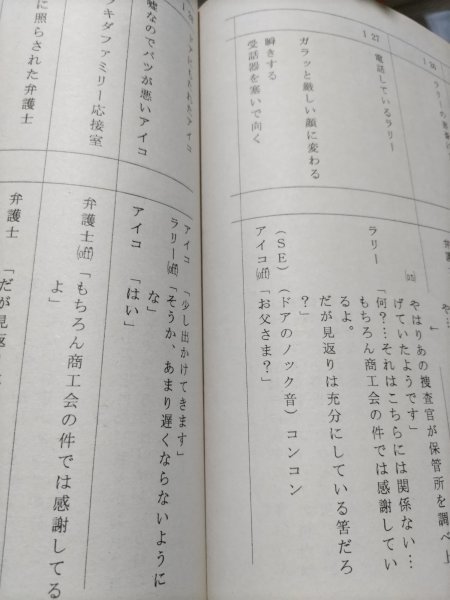 ラリーの
や…
(on)
やはりあの捜査官が保管所を調べ上
げていたようです」
1 27
電話しているラリー
ラリー
「何?…それはこちらには関係ない…
もちろん商工会の件では感謝してい
るよ。
だが見返りは充分にしている筈だろ
?」
ガラッと厳しい顔に変わる
瞬きする
受話器を塞いで向く
(SE)(ドアのノック音)コンコン
アイコ(off)「お父さま?」
アイコ 「少し出かけてきます」
ラリー(off)「そうか、あまり遅くならないように
な」
嘘なのでバツが悪いアイコ
アイコ 「はい」
キダファミリー応接室
弁護士(off)「もちろん商工会の件では感謝してる
よ」
に照らされた弁護士
弁護士 「だが見返り